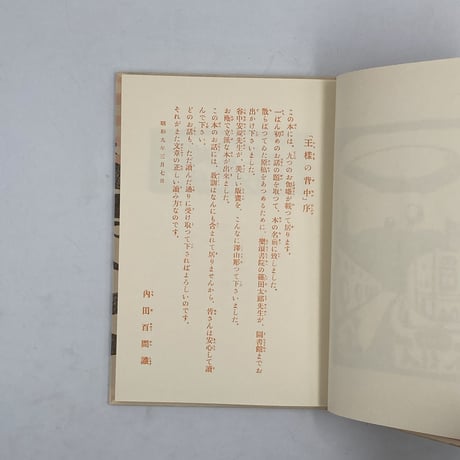 「王樣の背中」序
この本には、九つのお伽噺が載つて居ります。
一ばん初めのお話の題を取つて、本の名前に致しました。
散らばつてゐた原稿をあつめるために、樂浪書院の篠田太郎先生が、圖書館までお
出かけ下さいました。
谷中安規先生が、美しい版畫を、こんなに澤山彫つて下さいました。
お蔭で立派な本が出來ました。
この本のお話には、敎訓はなんにも含まれて居りませんから、皆さんは安心して讀
んで下さい。
どのお話も、ただ讀んだ通りに受け取つて下さればよろしいのです。
それがまた文章の正しい讀み方なのです。
昭和九年三月七日
內田百間識